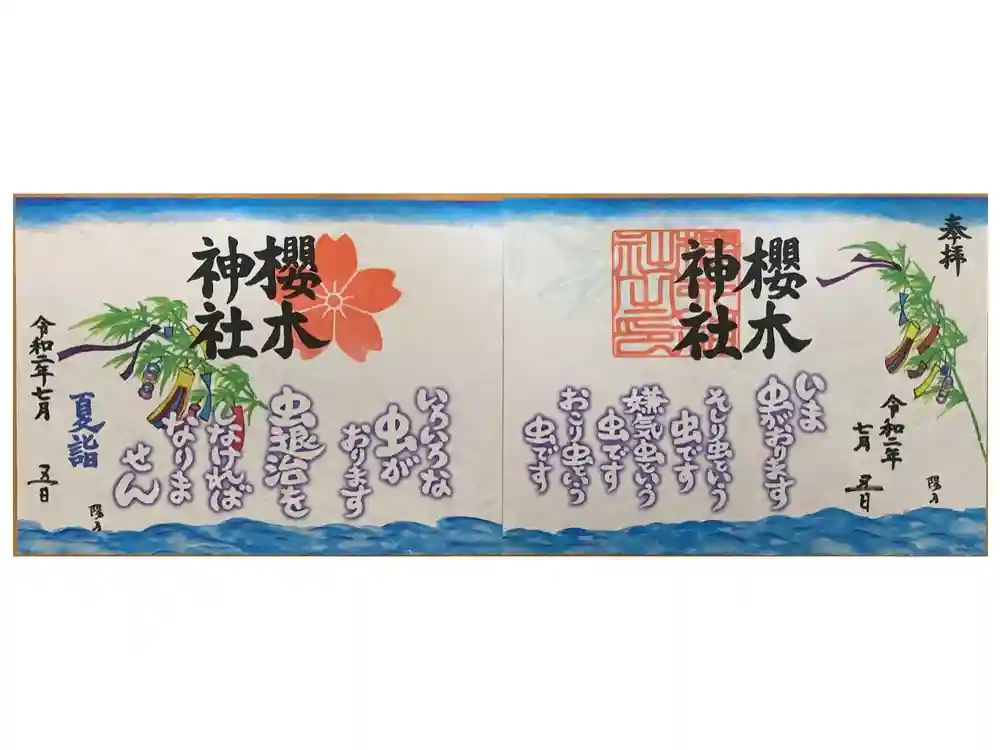 奉拝
櫻木
神社
令和二年
七月 五日
陽乃
いま
虫がおります
そり虫という
虫です
嫌気虫という
虫です
おこり虫という
虫です
櫻木
神社
いろいろな
虫が
おります
虫退治を
しなければ
なりま
せん
夏詣
令和二年七月 五日
陽乃